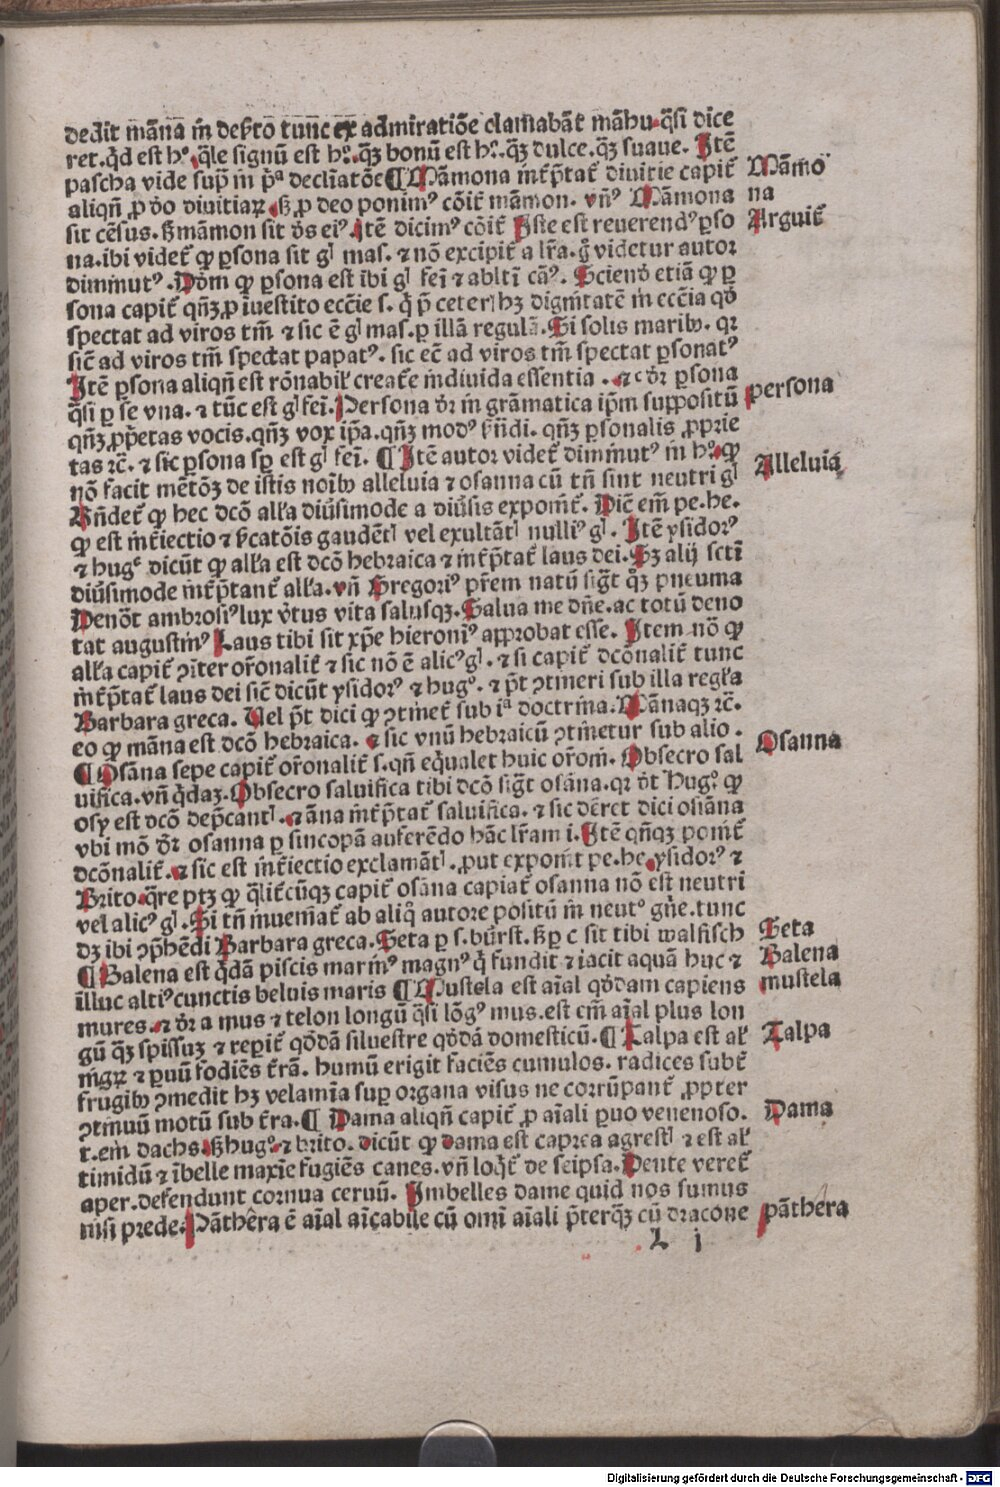 dedit māna in deſerto tunc ex admiratiōe clamabāt māhu. qͣſi dice
ret. qͥd est hͦ. qͣle signū est hͦ. qͣʒ bonū est hͦ. qͣʒ dulce. qͣʒ ſuaue. Itē
paſcha vide ſupͣ in pͥᵃ declīatōe ¶ Māmona int̄p̄tat̄ diuitie capit̄
Māmo
aliqn̄ ꝓ dō diuitiaꝝ. sꝫ ꝓ deo ponimꝰ cōit̄ māmon. vn̄ꝰ Māmona
na
ſit cēſus. sꝫ māmon ſit dꝰs eiꝰ. Itē dicimꝰ cōit̄ Iſte est reuerendꝰ ꝑſo
Arguit̄
na. ibi videt̄ ꝙ ꝑſona ſit gͥ maſ. ⁊ nō excipit̄ a lr̄a. gͦ videtur autor
diminutꝰ. Dōm ꝙ ꝑſona est ibi gͥ fei ⁊ abltī cāꝰ. Sciend̄ etiā ꝙ ꝑ
ſona capit̄ qn̄ʒ ꝓ iueſtito eccēie ſ. qͥ p̄ ceteri hʒ dignītatē in eccēia qd̄
ſpectat ad viros tm̄ ⁊ ſic ē gͥ maſ. ꝑ illā regulā. Si ſolis maribꝰ. qꝛ
ſic̄ ad viros tm̄ ſpectat papatꝰ. ſic ec̄ ad viros tm̄ ſpectat ꝑſonatꝰ
Itē ꝑſona aliqn̄ est rōnabil̄ creat̄e indiuida eſſentia. ⁊ c dr̄ ꝑſona
qͣſi ꝑ ſe vna. ⁊ tūc est gͥ fei. Perſona dr̄ in grāmatica ip̄m ſuppoſitū
perſona
qn̄ʒ ꝓp̄etas vocis. qn̄ʒ vox ip̄a. qn̄ʒ modꝰ ſn̄di. qn̄ʒ ꝑſonalis ꝓprie
tas ꝛc̄. ⁊ ſic ꝑſona ſꝑ est gͥ fei. ¶ Itē autor videt̄ diminutꝰ in hͦ. ꝙ
Alleluia
nō facit mētōʒ de iſtis noībꝰ alleluia ⁊ oſanna cū tn̄ ſint neutri gͥ
Rn̄det̄ ꝙ hec dcō alla diūſimode a diūſis exponit̄. Dic̄ em̄ pe. he.
ꝙ est int̄iectio ⁊ ſcatōis gaudētͥ vel exultātͥ nulliꝰ gͥ. Itē yſidorꝰ
⁊ hugͦ dicūt ꝙ alla est dcō hebraica ⁊ int̄p̄tat̄ laus dei. Sʒ alij ſcti
diūſimode int̄p̄tant̄ alla. vn̄ Gregoriꝰ pr̄em natū ſigͭt qͣʒ pneuma
Denōt ambroſiꝰ lux vt̄us vita ſaluſqʒ. Salua me dn̄e. ac totū deno
tat auguſtinꝰ Laus tibi ſit xp̄e hieronīꝰ approbat eſſe. Item nō ꝙ
alla capit̄ ꝯiter orōnalit̄ ⁊ ſic nō ē alicꝰ gͥ. ⁊ ſi capit̄ dcōnalit̄ tunc
int̄p̄tat̄ laus dei ſic̄ dicūt yſidorꝰ ⁊ hugͦ. ⁊ p̄t ꝯtineri ſub illa regl̄a
Barbara greca. Uel p̄t dici ꝙ ꝯtinet̄ ſub iᵃ doctrina. Mānaqʒ ꝛc̄.
eo ꝙ māna est dcō hebraica. ⁊ ſic vnū hebraicū ꝯtinetur ſub alio.
¶ Oſāna ſepe capit̄ orōnalit̄ ſ. qn̄ eqͥualet huic orōni. Obſecro ſal
Oſanna
uifica. vn̄ qͥdaʒ. Obſecro ſaluifica tibi dcō ſigͭt oſāna. qꝛ dt̄ hugͦ ꝙ
oſy est dcō dep̄cantͥ. ⁊ āna int̄p̄tat̄ ſaluifica. ⁊ ſic dēret dici oſiāna
vbi mō dr̄ oſanna ꝑ ſincopā auferēdo hāc lr̄am i. Itē qn̄qʒ ponit̄
dcōnalit̄. ⁊ ſic est int̄iectio exclamātͥ. ꝓut exponit pe. he. yſidorꝰ ⁊
Brito. qͣre ptʒ ꝙ qͣlitcūqʒ capit̄ oſāna capiat̄ oſanna nō est neutri
vel alicꝰ gͥ. Si tn̄ inueniat̄ ab aliqͦ autore poſitū in neutͦ gn̄e. tunc
dʒ ibi ꝯp̄hēdi Barbara greca. Seta ꝑ ſ. būrſt. sꝫ ꝑ c ſit tibi walfiſch
Seta
¶ Balena est qͥdā piſcis marinꝰ magnꝰ qͥ fundit ⁊ iacit aquā huc ⁊
Balena
illuc altiꝰ cunctis beluis maris ¶ Muſtela est aīal qd̄dam capiens
muſtela
mures. ⁊ dr̄ a mus ⁊ telon longū qͣſi lōgꝰ mus. est em̄ aīal plus lon
gū qͣʒ ſpiſſuʒ ⁊ reperit̄ qd̄dā ſilueſtre qd̄dā domeſticū. ¶ Talpa est al̄
Talpa
nigꝝ ⁊ ꝑuū fodiēs t̄rā. humū erigit faciēs cumulos. radices ſubt̄
frugibꝰ ꝯmedit hʒ velamīa ſuꝑ organa viſus ne corrūpant̄ ꝓpter
ꝯtinuū motū ſub t̄ra. ¶ Dama aliqn̄ capit̄ ꝓ aīali ꝑuo venenoſo.
Dama
t. em̄ dachs. sꝫ hugͦ. ⁊ brito. dicūt ꝙ dama est caprea agreſtͥ ⁊ est al̄
timidū ⁊ ībelle maxīe fugiēs canes. vn̄ loqͥt̄ de ſeipſa. Dente veret̄
aper. defendunt cornua ceruū. Imbelles dame quid nos ſumus
niſi prede. Pāthera ē aīal aīcabile cū omī aīali p̄terqͣʒ cū dracone
pāthera
L i
Digitalisierung gefördert durch die Deutsche Forschungsgemeinschaft - DFG